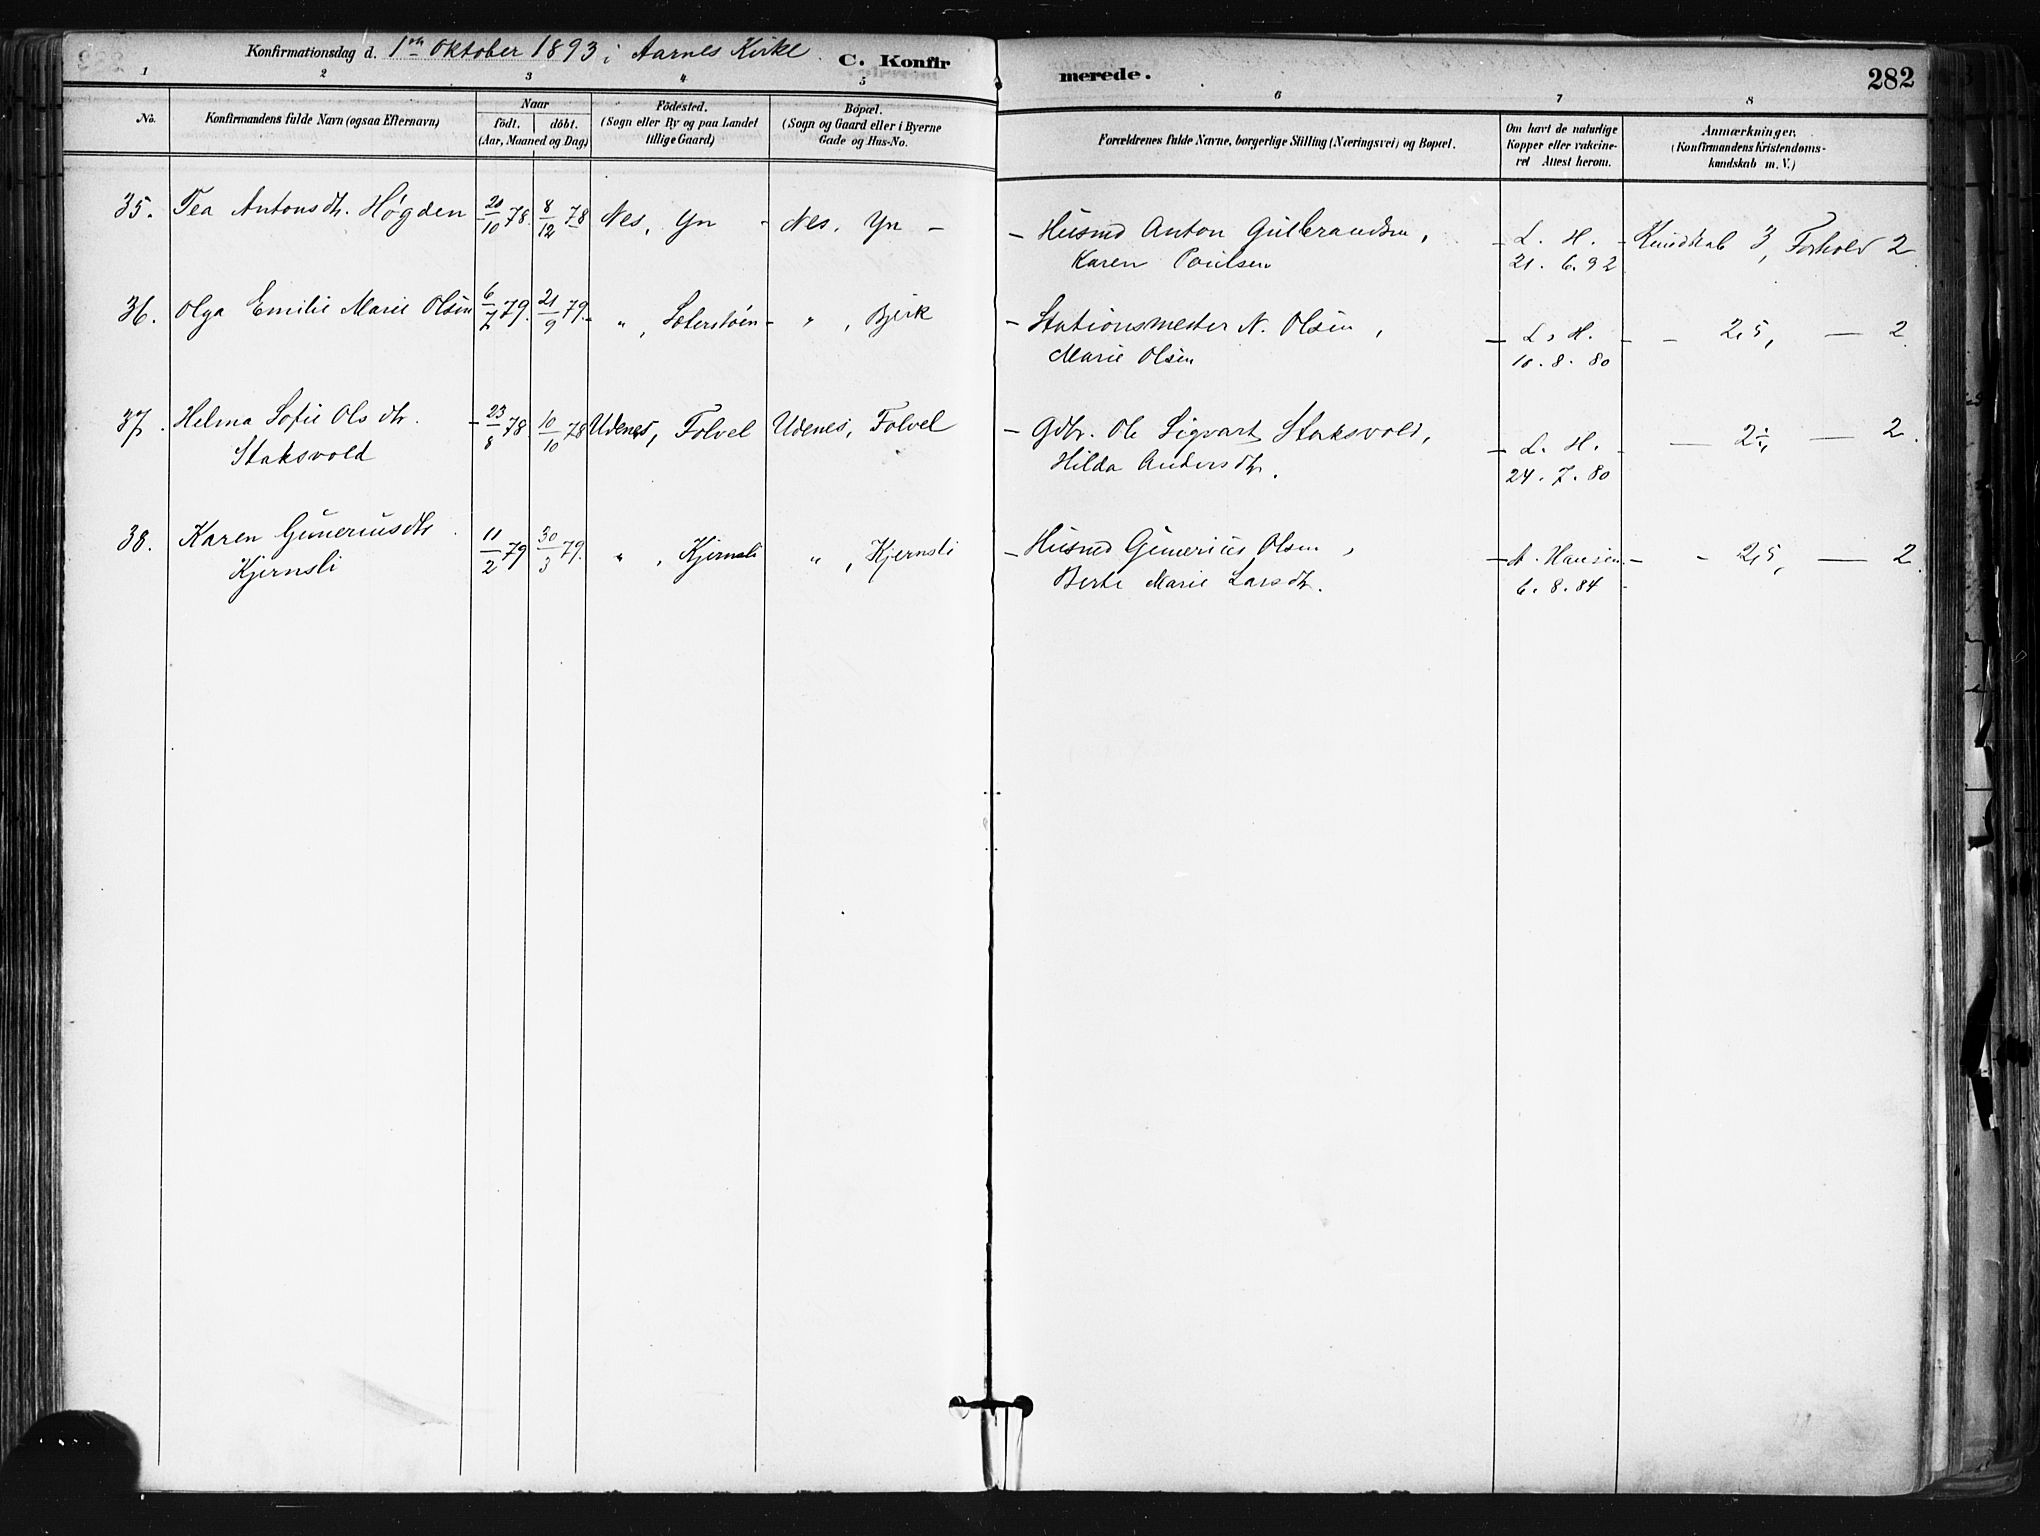 Konfirmationsdag d. 1ste Oktober 1893 i Aarnes Kirke. C. Konfirmerede. 282
1 2 3 4 5 6 7 8
No. | Konfirmandens fulde Navn (ogsaa Efternavn) | Naar födt. döbt. (Aar, Maaned og Dag) | Födested. (Sogn eller By og paa Landet tillige Gaard) | Bopæl. (Sogn og Gaard eller i Byerne Gade og Hus-No. | Forældrenes fulde Navne, borgerlige Stilling (Næringsvei) og Bopæl. | Om havt de naturlige Kopper eller vakcineret Attest herom. | Anmærkninger. (Konfirmandens Kristendomskundskab m. V.)
35. Tea Antonsdtr. Høgden 20/10 78. 8/12 78 Nes, Yn - Nes, Yn - - Husmd Anton Gulbrandsen, - L. H. - Kundskab 3, Forhold 2.
Karen Poulsen 21. 6. 92
36. Olga Emilie Marie Olsen 6/7 79. 21/9 79. - " , Seterstøen - " , Bjerk - Stationsmester N. Olsen, - L. H. - - 2,5, — 2.
Marie Olsen 10. 8. 80
37. Helma Sofie Olsdtr. - 23/8 78. 10/10 78 Udenes, Folvel Udenes, Folvel - Gdbr. Ole Sigvart Staksvold, - L. H. - — 2,5, — 2.
Staksvold Hilda Andersdtr. 24. 7. 80
38. Karen Guneriusdtr. 11/2 79 30/3 79. " , Kjernsli " , Kjernsli - Husmd Gunerius Olsen, - A. Hansen - - 2,5, — 2.
Kjernsli Berte Marie Larsdtr. 6. 8. 84 -